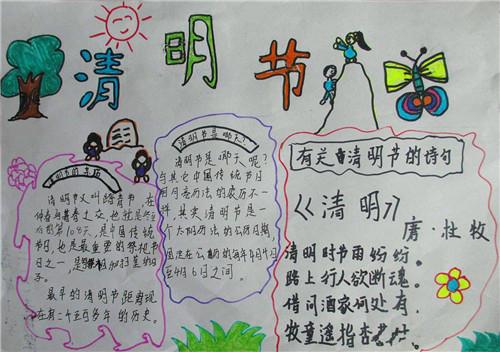 清明节
明节的来历
清明节又叫踏青节，在
仲春与暮春之交，也就是冬至
后的第108天，是中国传统
节日，也是最重要的祭祀节
日之一，是祭祖和扫墓的日
子。
最早的清明节距离现
在有二千五百多年的历史。
清明节是哪天？
清明节是哪天呢？
与其它中国传统节日
用月亮历法的农历不一
样，其实清明节是一
个太阳历法的公历日期，
固定在公历的每年4月4日
至4月6日之间。
有关清明节的诗句
《清明》
唐·牧
清明时节雨纷纷。
路上行人欲断魂。
借问酒家何处有.
牧童遥指杏